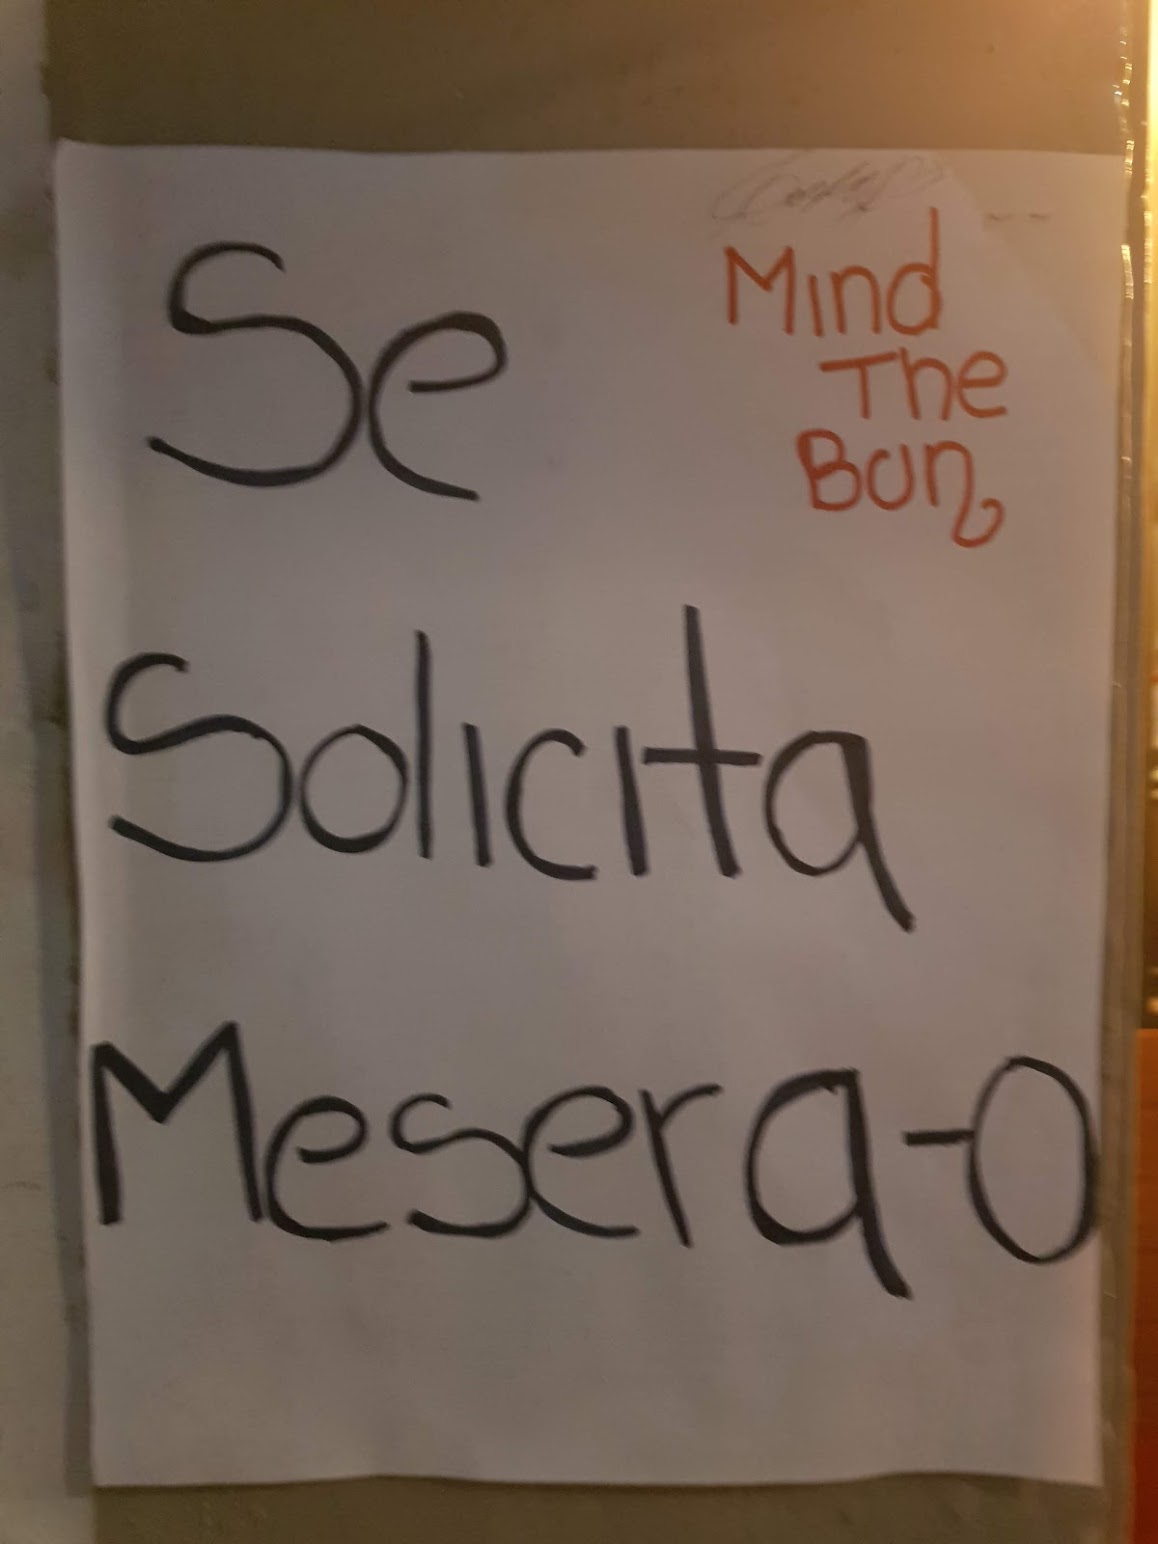 Se
Mind
The
Bun
Solicita
Mesera-o